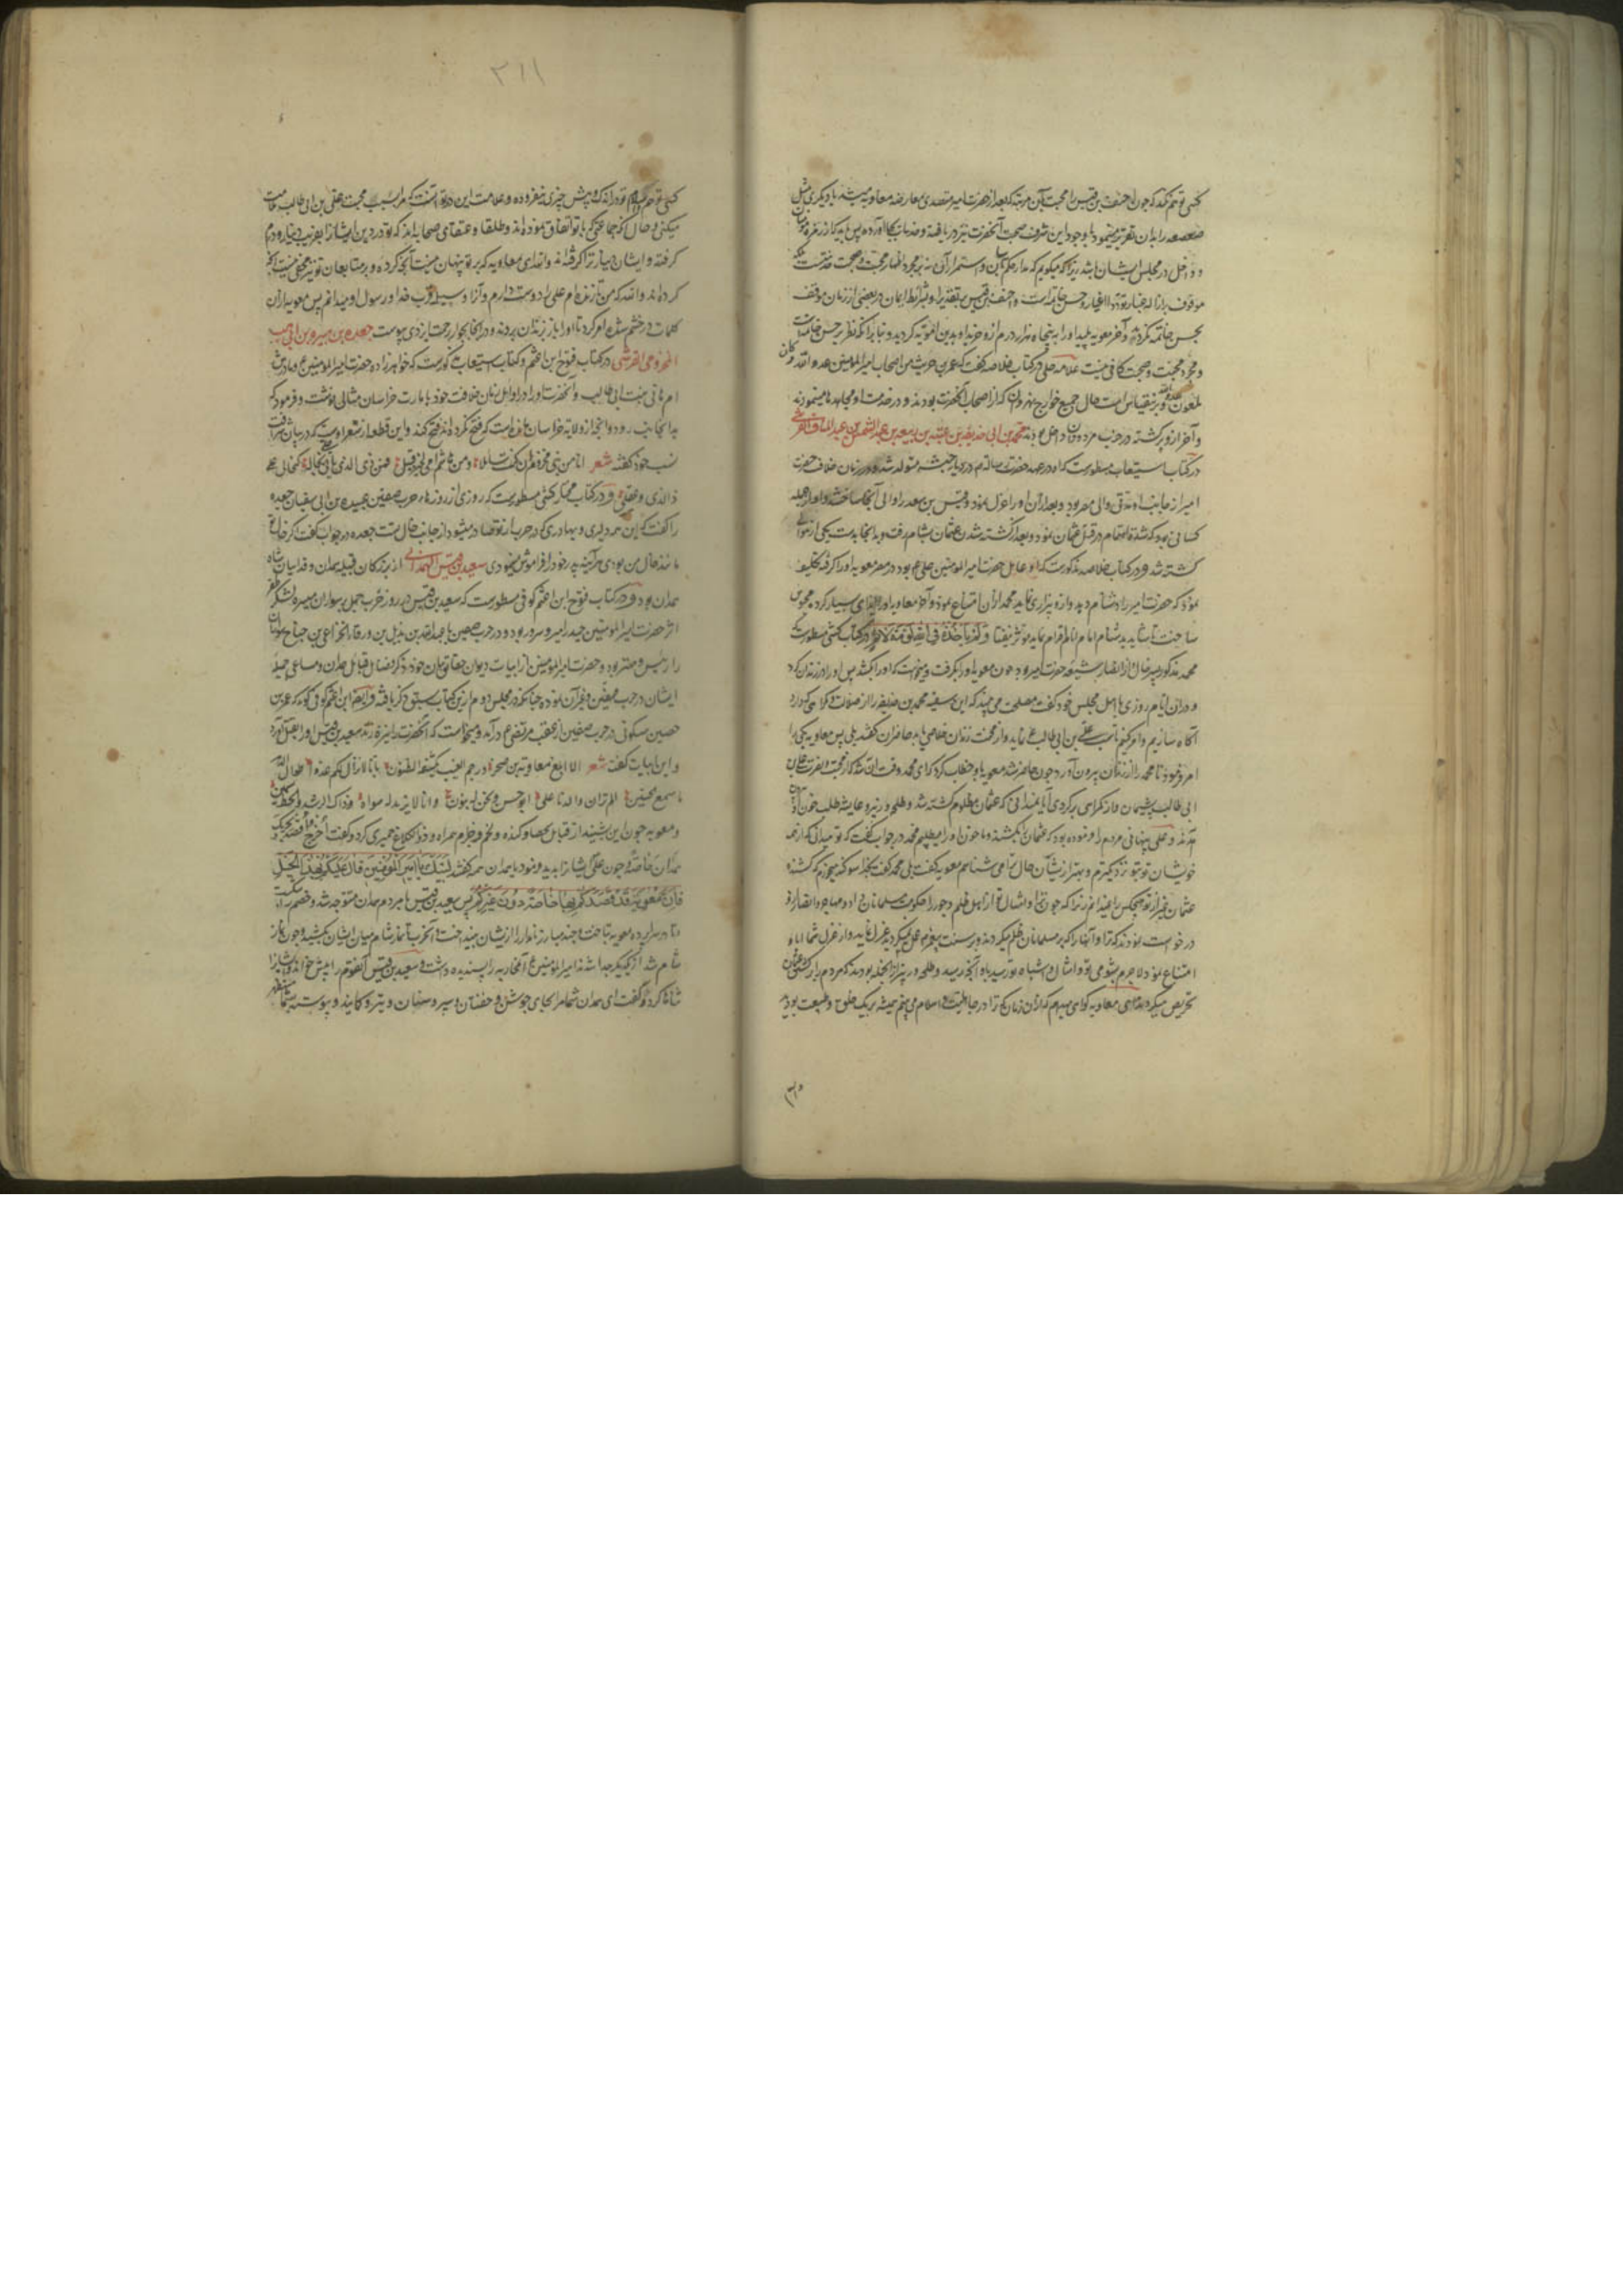 کسی توهم نکند که چون احنف بن قیس را محبت بآن مرتبه که بعد از حضرت امیر متصدی معارضه معاویه میشد با دیگری مثل
صعصعه را بدان تقریر مینمود با وجود این شرف صحبت آنحضرت نیز دریافته و خدمات بجا آورده پس باید که از زمره مؤمنان
و داخل در مجلس ایشان باشد زیرا که میگویم که مدار حکم بایمان و استمرار آن نه بر مجرد اظهار محبت و صحبت و خدمتست بلکه
موقوف بر ازاله غبار تودد لاغیار و حسن خاتمه است و احنف بن قیس بر تقدیر او بشرائط ایمان در بعضی از زمان موفق
بحسن خاتمه نگردیده و آخر معویه پلید او را به پنجاه هزار درم ازو خرید او بدین اموی گردید و بنابر آنکه نظر بر حسن خاتمه است
و مجرد محبت و صحبت کافی نیست علامه حلی در کتاب خلاصه گفت که عمر بن حریث من اصحاب امیر المؤمنین عدو الله و کان
ملعون و برینقیاس است حال جمیع خوارج نهروان که از اصحاب آنحضرت بودند و در خدمت او مجاهده مینمودند
و آخر ازو برگشته در حزب مردودان داخل بودند محمد بن ابی حذیفة بن عتبة بن ربیعة بن عبد الشمس بن عبد المناف القرشی
در کتاب استیعاب مسطورست که او در عهد حضرت رسالت در دیار حبشه متولد شده و در زمان خلافت حضرت
امیر از جانب او مدتی والی مصر بود و بعد از آن او را عزل نمود و قیس بن سعد را والی آنجا ساخت و او از جمله
کسانی بود که شدة اهتمام در قتل عثمان نمود و بعد از کشته شدن عثمان بشام رفت و بدانجا بدست یکی از موالی
کشته شد و در کتاب خلاصه مذکورست که او عامل حضرت امیر المؤمنین علی ع بود در مصر معویه او را گرفته تکلیف
نمود که حضرت امیر را دشنام دهد و ازو بیزاری نماید محمد از آن امتناع نمود و آخر معاویه او را ایذای بسیار کرده محبوس
ساخت تا شاید بدشنام امام انام اقدام نماید مؤثر نیفتاد و لم یأخذه فی الله لومة لائم و در کتاب کشی مسطورست که
محمد مذکور پسر خال از انصار شیعه حضرت امیر بود چون معویه او را بگرفت و میخواست که او را بکشد پس او را در زندان کرد
و در آن ایام روزی با اهل مجلس خود گفت مصلحت می بیند که این سفیه محمد بن حذیفه را از ضلالت و گمراهی که دارد
آگاه سازیم و امر کنیم تا سب علی بن ابی طالب ع نماید و از محنت زندان خلاصی یابد حاضران گفتند بلی پس معاویه یکی را
امر فرمود تا محمد را از زندان بیرون آورد چون حاضر شد معویه باو خطاب کرد که ای محمد وقت آن نشد که از محبت و نصرت علی بن
ابی طالب پشیمان و از گمراهی برگردی آیا نمیدانی که عثمان مظلوم کشته شد و طلحه و زبیر و عایشه طلب خون او
آمدند و علی پنهانی مردم را فرموده بود که عثمان را بکشند و ما خون او را میطلبیم محمد در جواب گفت که تو میدانی که از همه
خویشان تو بتو نزدیکترم و بهتر از ایشان حال ترا می شناسم معویه گفت بلی محمد گفت بخدا سوگند میخورم که کشنده
عثمان غیر از تو هیچکس را نمیدانم زیرا که چون ترا و امثال تو از اهل ظلم و جور را حکومت مسلمانان داد و مهاجر و انصار ازو
درخواست نمودند که ترا و آنها را که بر مسلمانان ظلم میکردند و بر سنت پیغمبر عمل نمیکردند عزل نماید و او از عزل شما ابا و
امتناع نمود لاجرم بشومی تو و امثال و اشباه تو رسید باو آنچه رسید و طلحه و زبیر از آنجمله بودند که مردم را بر کشتن عثمان
تحریص میکردند و ای معاویه گواهی میدهم که از آن زمان که ترا در جاهلیت و اسلام می بینم همیشه بر یک خلق و طبیعت بوده
۲۱۱
کسی تو حلم و کرم تو در اندک و بیش چیزی نیفزوده و علامت این دعوی آنست که مرا بسبب محبت علی بن ابی طالب ملامت
میکنی و حال آنکه جماعتی که با تو اتفاق نموده اند و طلقا و عتقای صحابه اند که تو در دین ایشانرا بفریب دنیا و درم
گرفته و ایشان دنیا از ترا گرفته اند والله ای معاویه که بر تو پنهان نیست آنچه کرده و بر متابعان تو نیز مخفی نیست آنچه
کرده اند والله که من تا زنده ام علی را دوست دارم و آنرا وسیله قرب خدا و رسول او میدانم پس معویه ازان
کلمات در خشم شده امر کرد تا او را باز بزندان بردند و در آنجا بجوار رحمت ایزدی پیوست جعده بن هبیره بن ابی وهب
المخزومی القرشی در کتاب فتوح ابن اعثم و کتاب استیعاب مذکورست که خواهرزاده حضرت امیر المؤمنین ع و مادرش
ام هانی بنت ابی طالب و آنحضرت او را در اوایل زمان خلافت خود بامارت خراسان مثالی نوشت و فرمود که
بدانجانب رود و آنچه از ولایة خراسان مانده است که فتح نکرده اند فتح کند و این قطعه از شعر اوست که در بیان شرافت
نسب خود گفته شعر انا من بنی مخزوم ان کنت سائلا و من هاشم امی لخیر قبیل فمن ذی الذی یأبی علی بخاله کخالی علی
ذالندی و عقیل و در کتاب مختار کشی مسطورست که روزی از روزهاء حرب صفین عتبه بن ابی سفیان جعده
را گفت که این همه دلیری و بهادری که در حرب از تو صادر میشود از جانب خال تست جعده در جواب گفت اگر خال تو
مانند خال من بودی هرآینه پدر خود را فراموش مینمودی سعید بن قیس الهمدانی از بزرگان قبیله همدان و فدائیان شاه
همدان بود و در کتاب فتوح ابن اعثم کوفی مسطورست که سعید بن قیس در روز حرب جمل بر سواران میسره لشکر ظفر
اثر حضرت امیر المؤمنین حیدر امیر و سرور بود و در حرب صفین با عبدالله بن بدیل بن ورقاء الخزاعی بن جناح سواران
را رئیس و مهتر بود و حضرت امیر المؤمنین از ابیات دیوان حقایق بیان خود ذکر فضایل قبائل همدان و مساعی جمیله
ایشان در حرب صفین و غیر آن نموده چنانکه در مجلس دوم ازین کتاب سبق ذکر یافته و ایضا ابن اعثم کوفی گوید که عمرو بن
حصین سکونی در حرب صفین از عقب مرتضی ع درآمد و میخواست که آنحضرت را نیزه زند سعید بن قیس او را بقتل آورد
و این ابیات گفت شعر الا ابلغ معاویة بن صخر و رجم الغیب یکشف الظنون بانا لا نزال لکم عدوا طوال الدهر
ما سمع الحنین الم تر ان والدنا علی ابو حسن و نحن له بنون و انا لا نرید به سواه و ذاک الرشد و الحظ السمین
و معویه چون این شنید از قبایل یحصب و کنده و لخم و جذام همراه ذوالکلاع حمیری کرد و گفت اخرج و اقصد بحربک
همدان خاصة و چون علی ایشانرا بدید فرمود یا همدان همه گفتند لبیک یا امیر المؤمنین قال علیکم بهذا الخیل
فان معویة قد قصدکم بها خاصة دون غیرکم پس سعید بن قیس با مردم همدان متوجه شد و خصم را بشکست
و تا در سراپرده معویه تاخت و چند مبارز نامدار از ایشان بینداخت و آن حرب تا نماز شام میان ایشان بکشید و چون نماز
شام شد از یکدیگر جدا شدند امیر المؤمنین ع آن محاربه را پسندیده داشت و سعید بن قیس و آنقوم را پیش خواند و ایشانرا
ثنا کرد و گفت ای همدان شما مرا بجای جوش و خفتان و سپر و سنان و تیر و کمانید و پیوسته بشما مستظهر